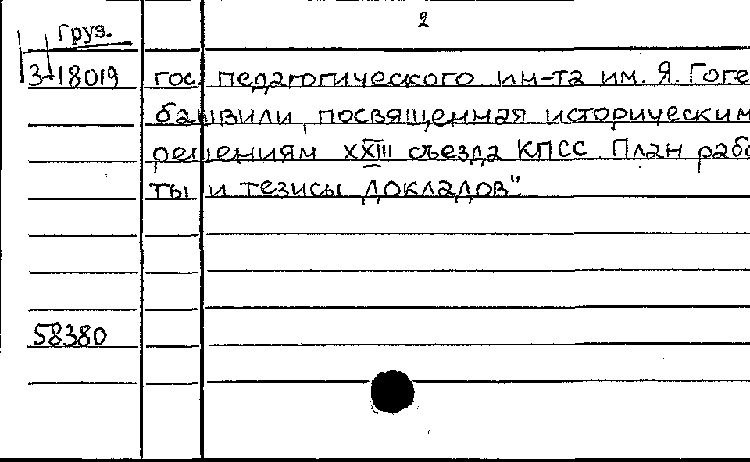 2
Груз.
3-18019
гос. педагогического ин-та им. Я. Гоге
башвили, посвященная историческим
решениям XXIII съезда КПСС. План рабо
ты и тезисы докладов"
58380